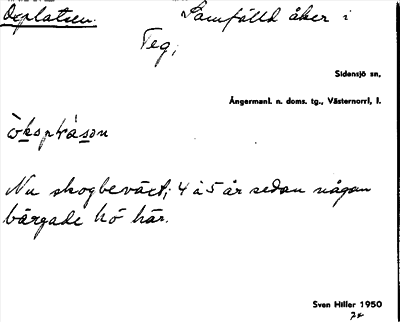 Oxplatsen. Samfälld åker i
Teg,
Sidensjö sn,
Ångermanl. n. doms. tg., Västernorrl. l.
Nu skogbeväxt; 4 à 5 år sedan någon
bärgade hö här.
Sven Hiller 1950